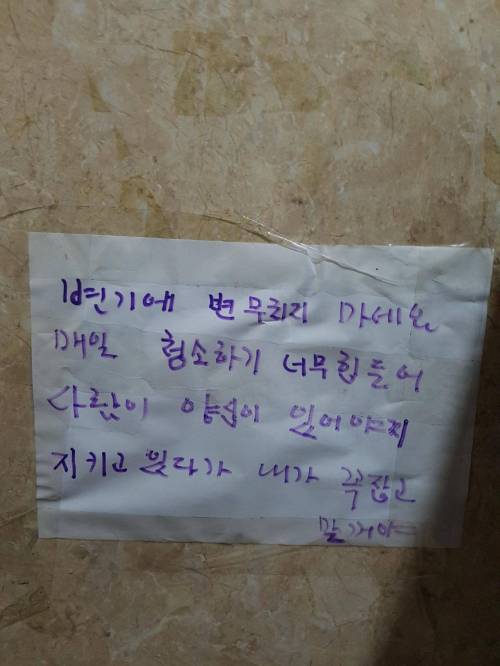 변기에 변 무치지 마세요
매일 청소하기 너무힘들어
사람이 양심이 있어야지
지키고 있다가 내가 꼭잡고
말거야